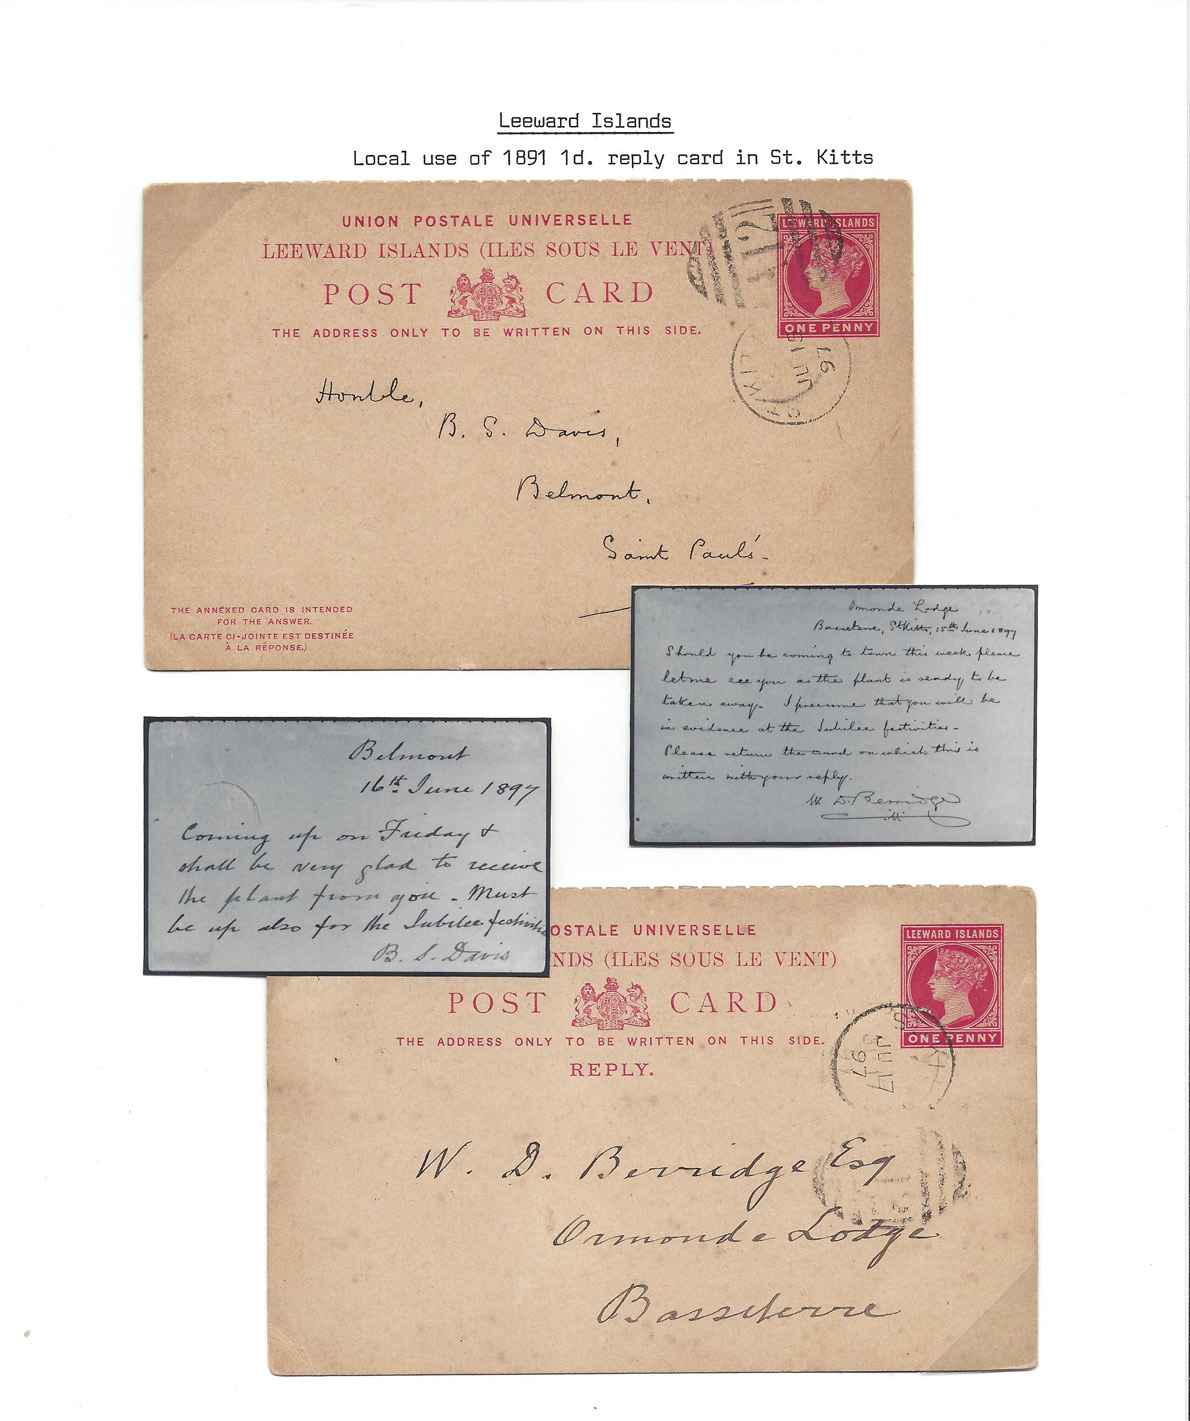 Leeward Islands
Local use of 1891 1d. reply card in St. Kitts
UNION POSTALE UNIVERSELLE
LEEWARD ISLANDS (ILES SOUS LE VENT
POST CARD
THE ADDRESS ONLY TO BE WRITTEN ON THIS SIDE.
LEEWARD ISLANDS
ONE PENNY
ST KIT
JU 15
97
Honble,
B. S. Davis,
Belmont,
Saint Paul's
THE ANNEXED CARD IS INTENDED
FOR THE ANSWER.
(LA CARTE CI-JOINTE EST DESTINÉE
À LA RÉPONSE.)
Ormonde Lodge
Basseterre, St Kitts, 15th June 1897
Should you be coming to town this week please
let me see you as the plant is ready to be
taken away. I presume that you will be
in evidence at the Jubilee festivities.
Please return the card on which this is
written with your reply.
W. D. Berridge
Belmont
16th June 1897
Coming up on Friday &
shall be very glad to receive
the plant from you. Must
be up also for the Jubilee festivities
B. S. Davis
OSTALE UNIVERSELLE
NDS (ILES SOUS LE VENT)
POST CARD
THE ADDRESS ONLY TO BE WRITTEN ON THIS SIDE.
REPLY.
LEEWARD ISLANDS
ONE PENNY
JU 17
97
W. D. Berridge Esq
Ormonde Lodge
Basseterre